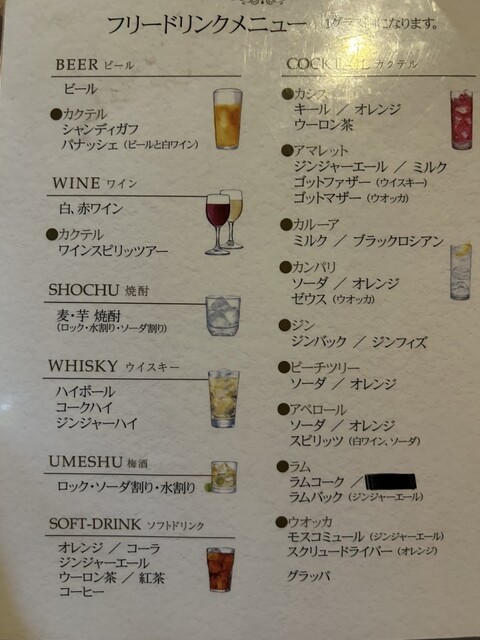 フリードリンクメニュー
になります。
BEER ビール
ビール
●カクテル
シャンディガフ
パナッシェ（ビールと白ワイン）
WINE ワイン
白、赤ワイン
●カクテル
ワインスピリッツアー
SHOCHU 焼酎
麦・芋 焼酎
（ロック・水割り・ソーダ割り）
WHISKY ウイスキー
ハイボール
コークハイ
ジンジャーハイ
UMESHU 梅酒
ロック・ソーダ割り・水割り
SOFT-DRINK ソフトドリンク
オレンジ ／ コーラ
ジンジャーエール
ウーロン茶 ／ 紅茶
コーヒー
カクテル
●カシス
キール ／ オレンジ
ウーロン茶
●アマレット
ジンジャーエール ／ ミルク
ゴットファザー（ウイスキー）
ゴットマザー（ウオッカ）
●カルーア
ミルク ／ ブラックロシアン
●カンパリ
ソーダ ／ オレンジ
ゼウス（ウオッカ）
●ジン
ジンバック ／ ジンフィズ
●ピーチツリー
ソーダ ／ オレンジ
●アペロール
ソーダ ／ オレンジ
スピリッツ（白ワイン、ソーダ）
●ラム
ラムコーク ／
ラムバック（ジンジャーエール）
●ウオッカ
モスコミュール（ジンジャーエール）
スクリュードライバー（オレンジ）
グラッパ